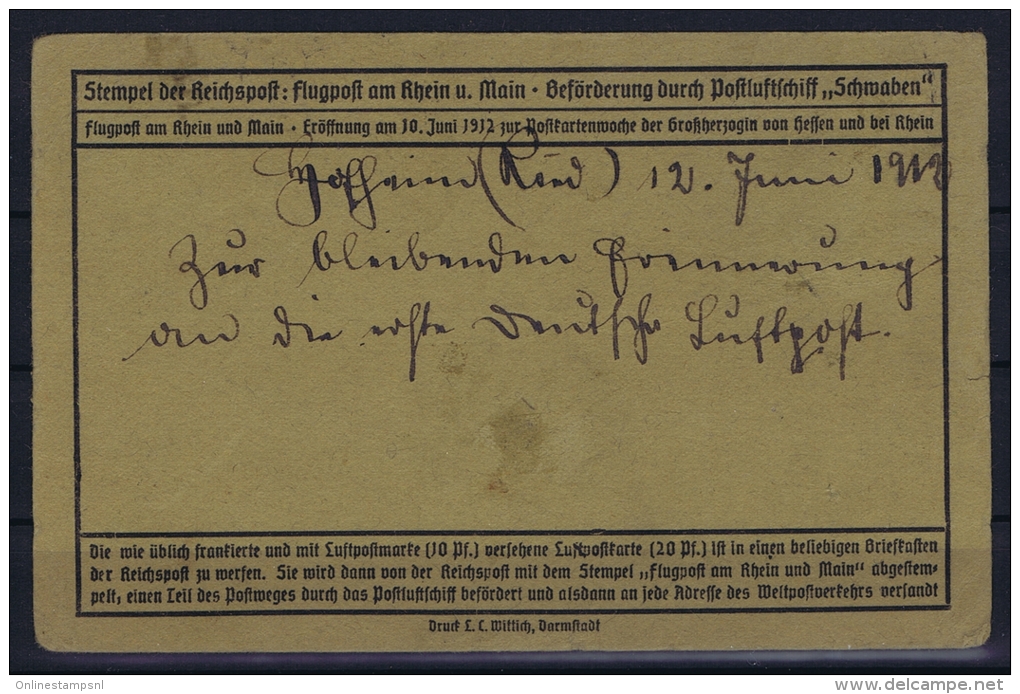 Stempel der Reichspost: Flugpost am Rhein u. Main · Beförderung durch Postluftschiff „Schwaben"
Flugpost am Rhein und Main · Eröffnung am 10. Juni 1912 zur Postkartenwoche der Großherzogin von Hessen und bei Rhein
Hofheim (Ried) 12. Juni 1912
Zur bleibenden Erinnerung
an die erste deutsche Luftpost.
Die wie üblich frankierte und mit Luftpostmarke (10 Pf.) versehene Luftpostkarte (20 Pf.) ist in einen beliebigen Briefkasten
der Reichspost zu werfen. Sie wird dann von der Reichspost mit dem Stempel „Flugpost am Rhein und Main" abgestem-
pelt, einen Teil des Postweges durch das Postluftschiff befördert und alsdann an jede Adresse des Weltpostverkehrs versandt
Druck L. C. Wittich, Darmstadt
Onlinestampsnl
delcampe.net